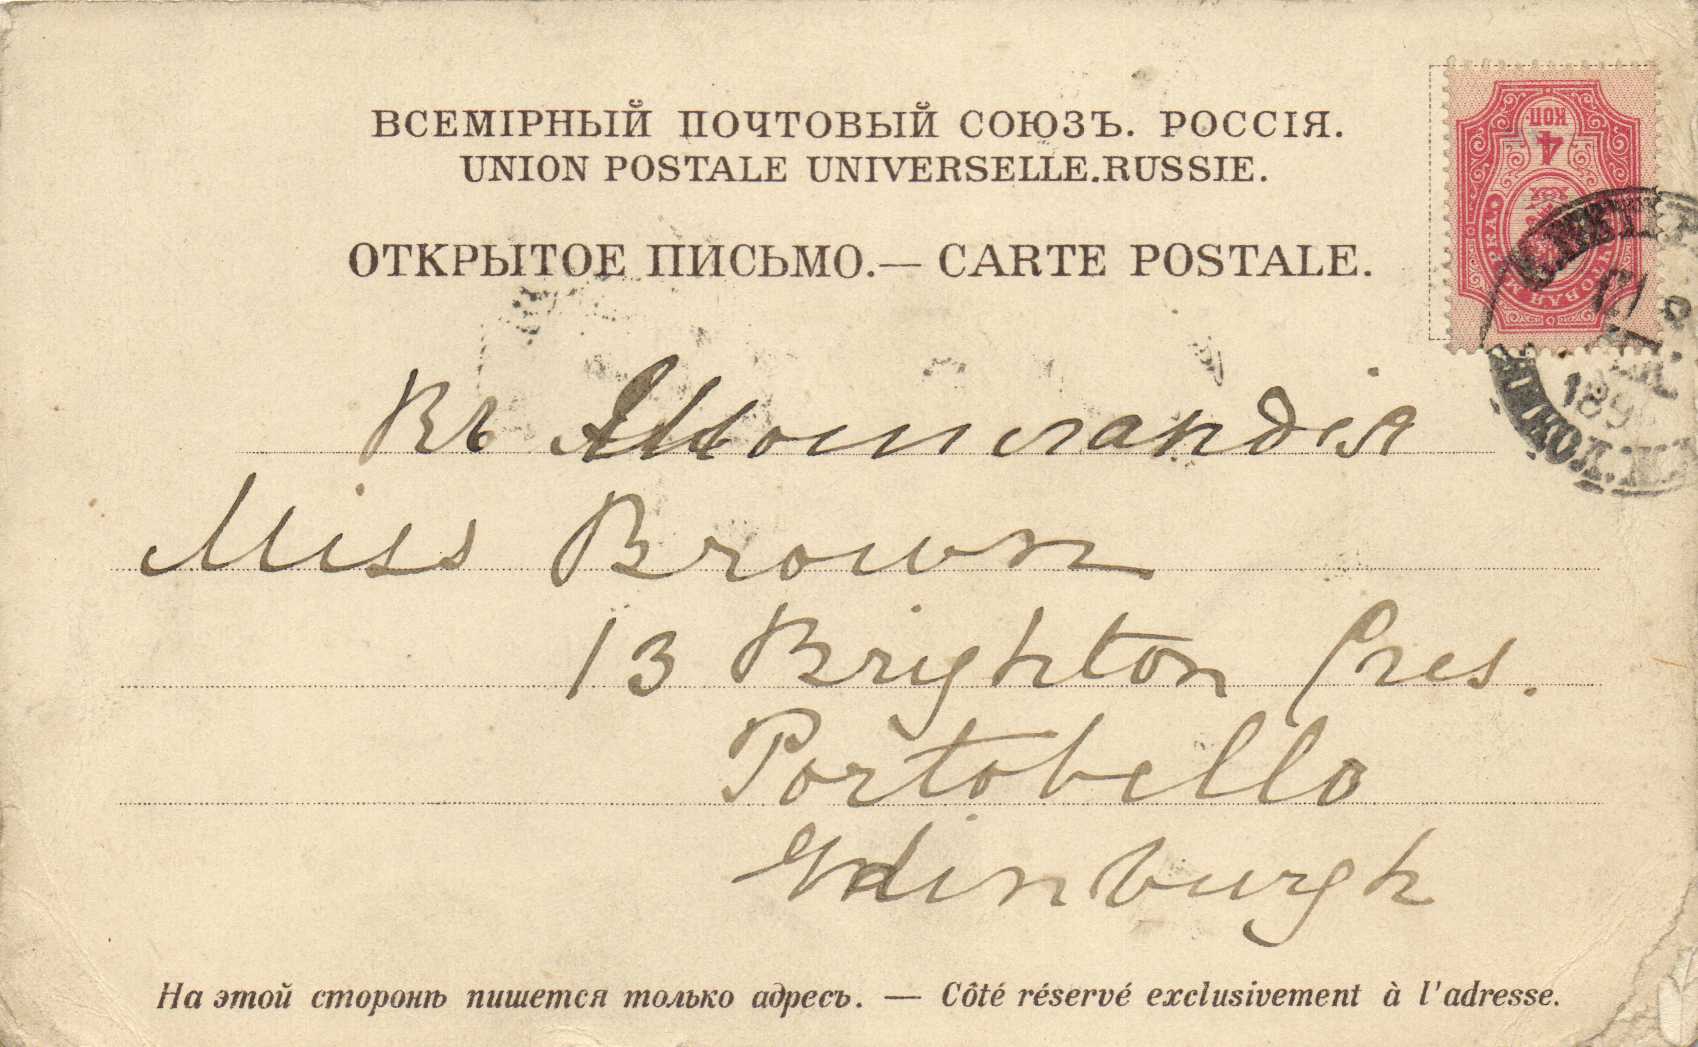 ВСЕМІРНЫЙ ПОЧТОВЫЙ СОЮЗЪ. РОССІЯ.
UNION POSTALE UNIVERSELLE. RUSSIE.
ОТКРЫТОЕ ПИСЬМО. — CARTE POSTALE.
4 КОП
189
Въ Шотландія
Miss Brown
13 Brighton Cres.
Portobello
Edinburgh
На этой сторонѣ пишется только адресъ. — Côté réservé exclusivement à l'adresse.